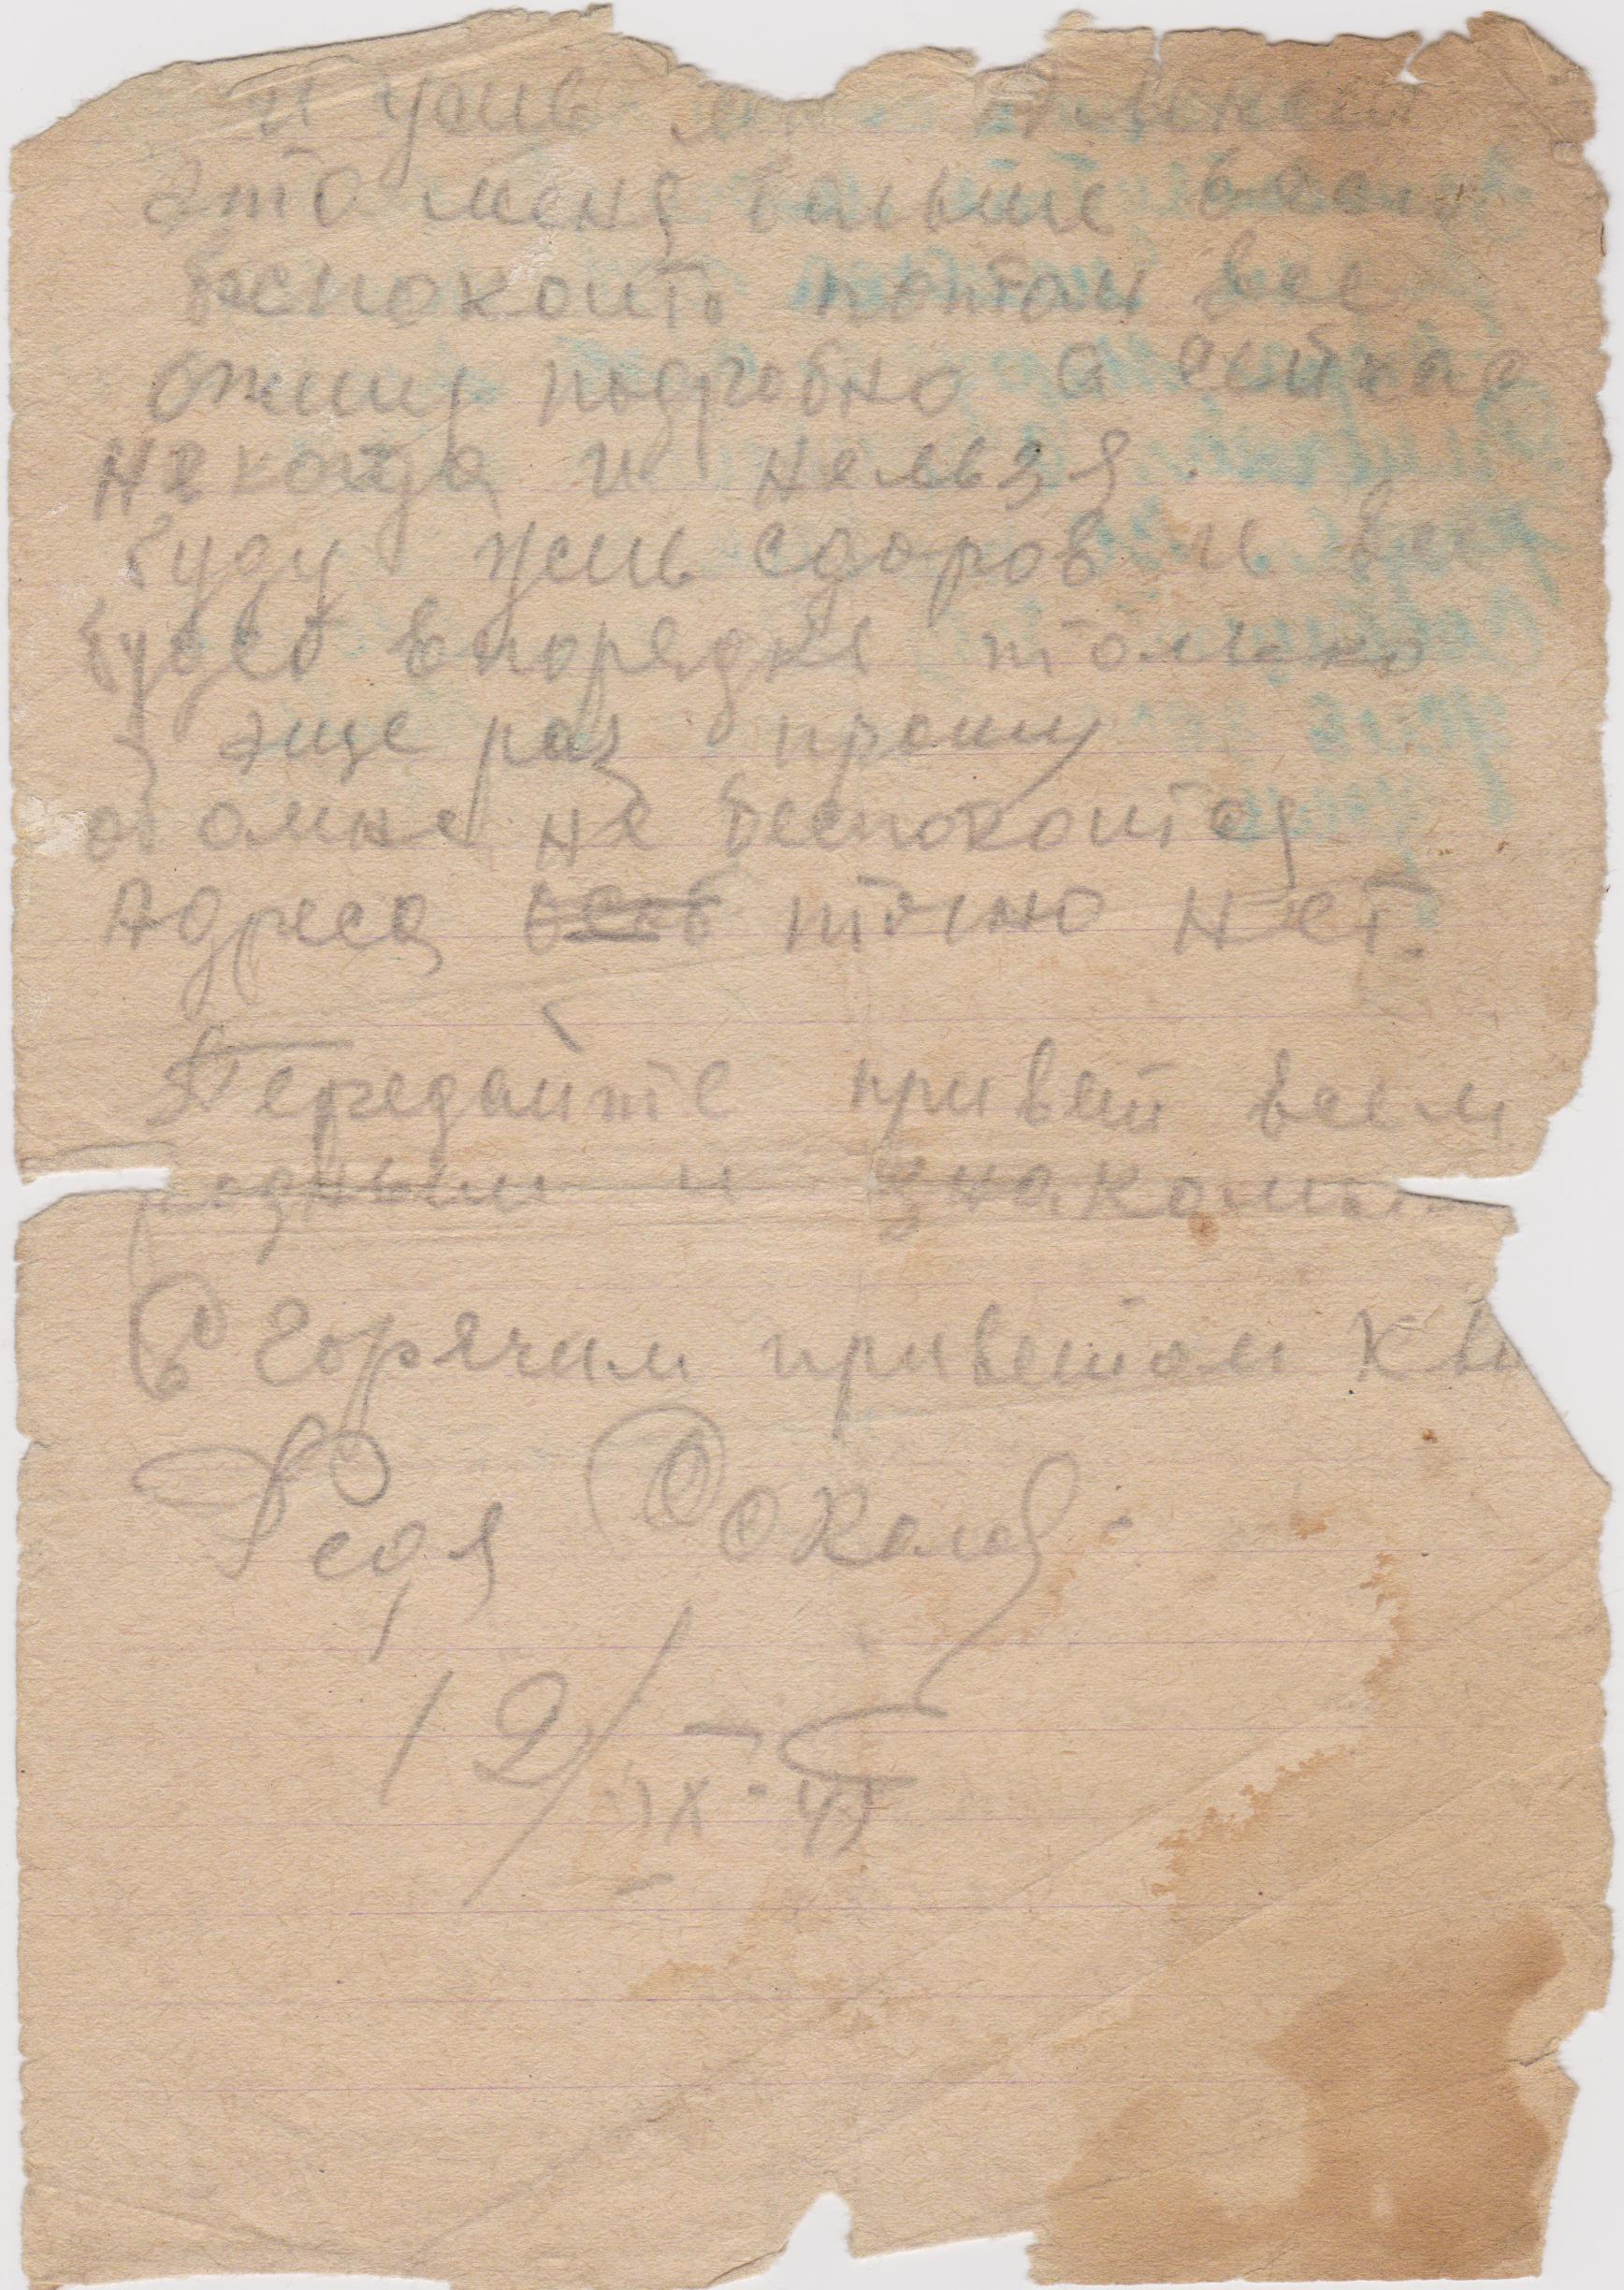 и
это меня больше всего
беспокоит потом все
опишу подробно а сейчас
некогда и нельзя.
Буду жив сдоров и все
будет впорядке только
эще раз прошу
обомне не беспокоится
Адреса точно нет.
Передайте привет всем
родным и знакомым
С горячим приветом к вам
Федя Соколов.
12/IX-41